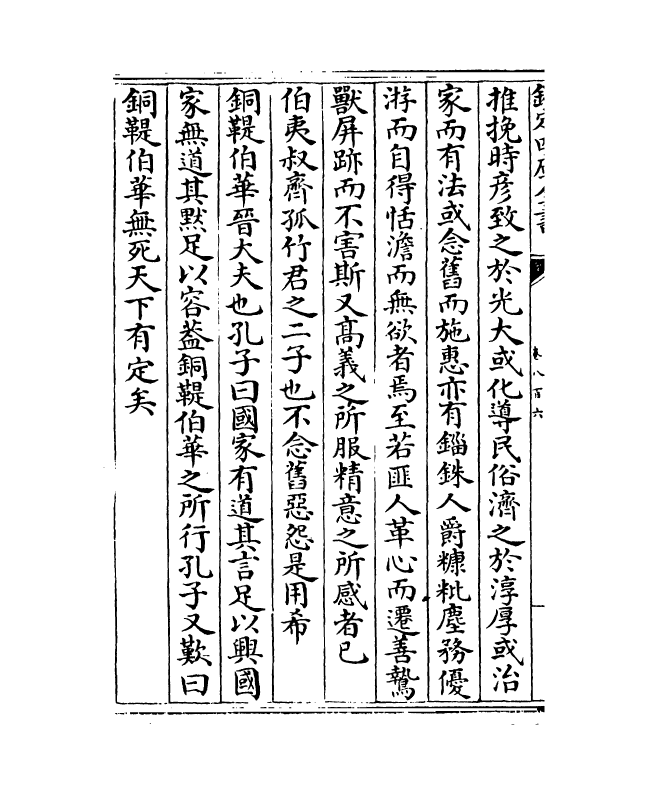 欽定四庫全書
卷八百六
推挽時彥致之於光大或化導民俗濟之於淳厚或治
家而有法或念舊而施惠亦有錙銖人爵糠粃塵務優
游而自得恬澹而無欲者焉至若匪人革心而遷善鷙
獸屏跡而不害斯又髙義之所服精意之所感者已
伯夷叔齊孤竹君之二子也不念舊惡怨是用希
銅鞮伯華晉大夫也孔子曰國家有道其言足以興國
家無道其默足以容葢銅鞮伯華之所行孔子又歎曰
銅鞮伯華無死天下有定矣